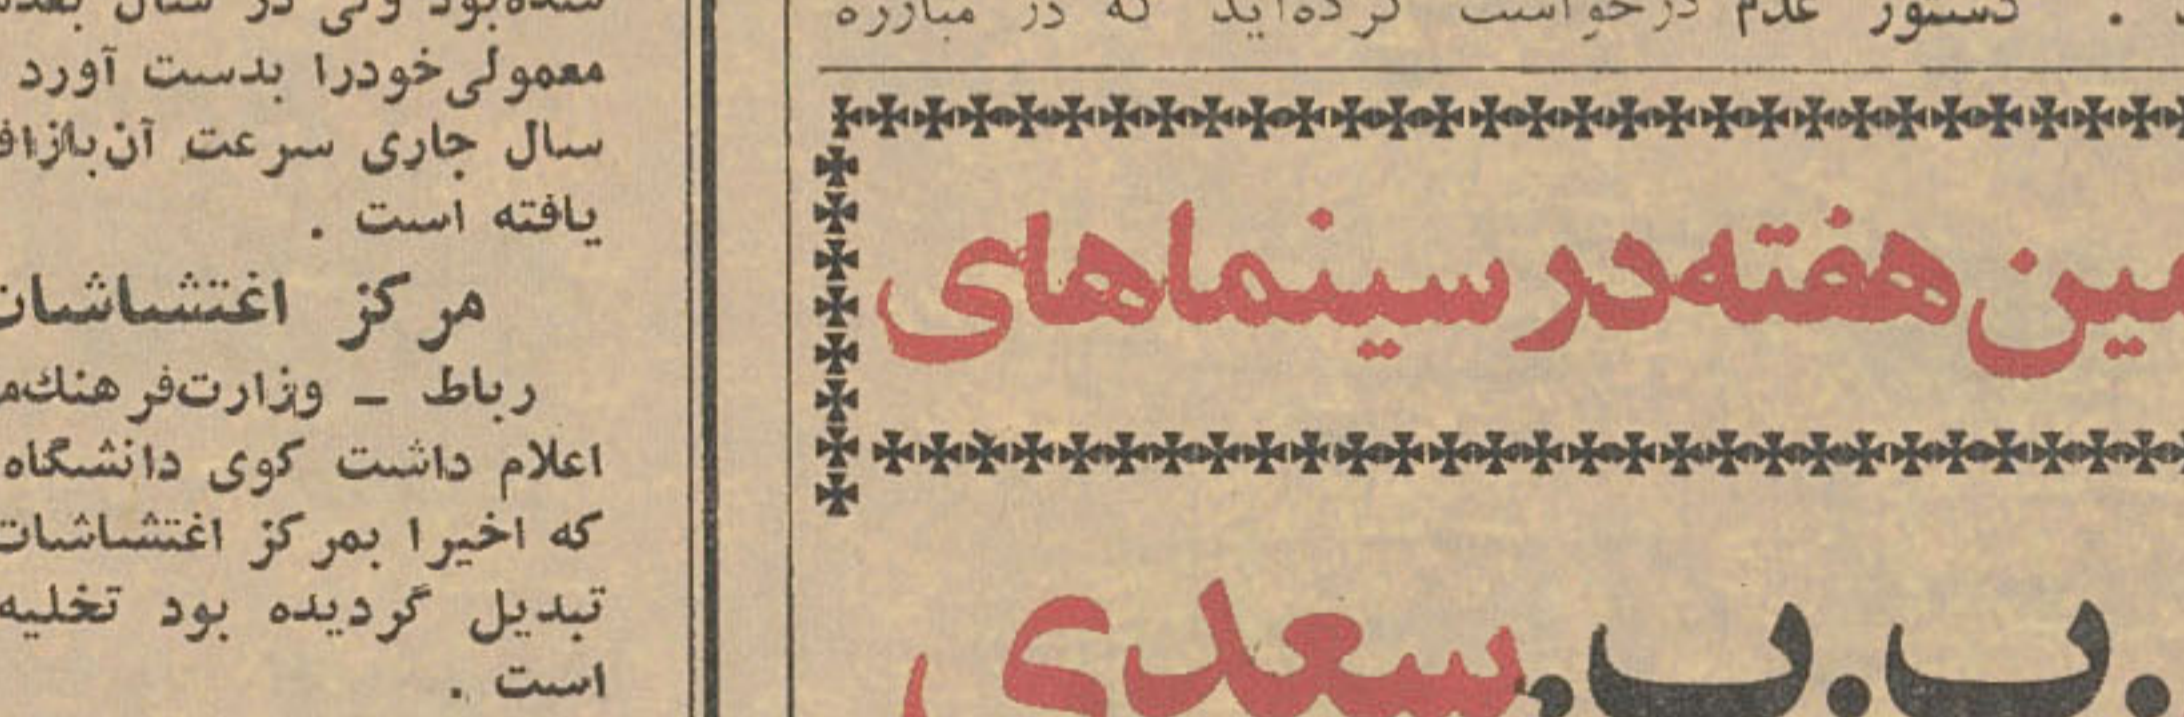 . دستور عدم درخواست کرده‌اید که در مبارزه
مین هفته در سینماهای
ب.ب. سعدی
شده بود ولی در سال بعد
معمولی خودرا بدست آورد
سال جاری سرعت آن باز اف
یافته است .
مرکز اغتشاشات
رباط – وزارت فرهنك م
اعلام داشت کوی دانشگاه
که اخیرا بمرکز اغتشاشات
تبدیل گردیده بود تخلیه
است .